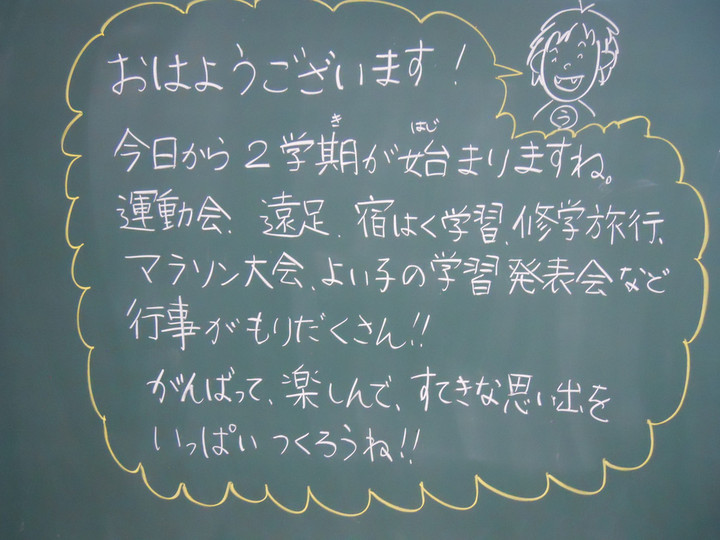 おはようございます!
今日から2学期が始まりますね。
運動会、遠足、宿はく学習、修学旅行、
マラソン大会、よい子の学習発表会など
行事がもりだくさん!!
がんばって、楽しんで、すてきな思い出を
いっぱいつくろうね!!
き
はじ
う